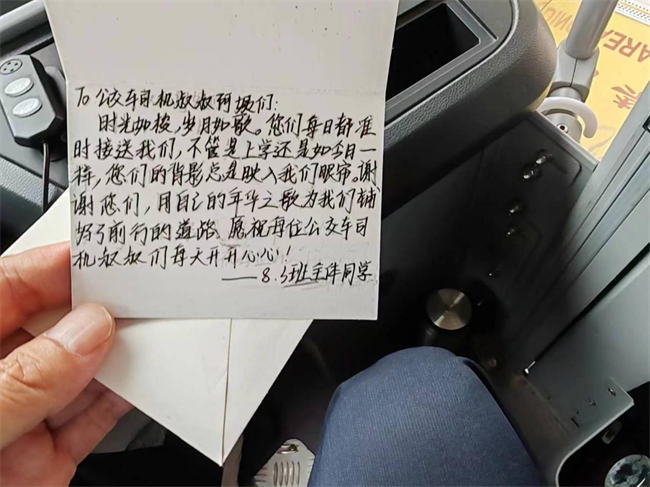 To 公交车司机叔叔阿姨们:
时光如梭,岁月如歌。您们每日都准
时接送我们,不管是上学还是如今日一
样,您们的背影总是映入我们眼帘。谢
谢您们,用自己的年华之歌为我们铺
好了前行的道路。愿祝每位公交车司
机叔叔们每天开开心心!
——8.5班全体同学
AREA